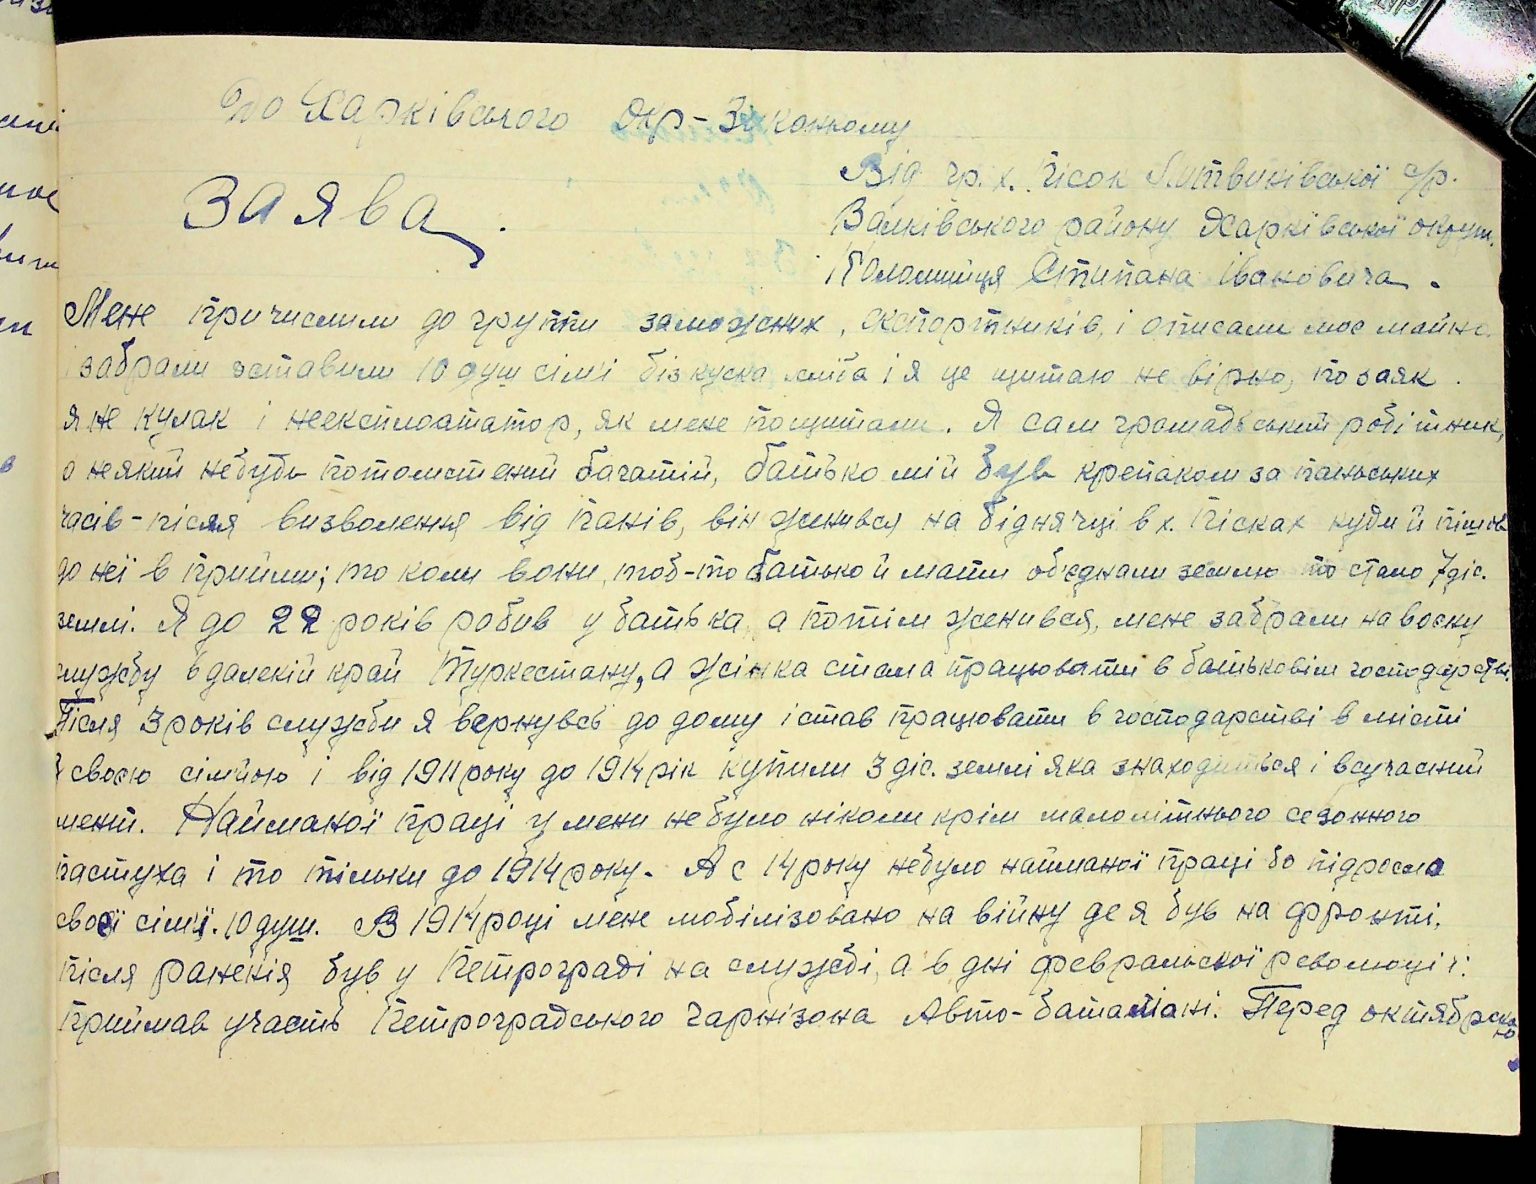 До Харківського Окр-Виконкому
Від гр. х. Пісок Литвинівської с/р.
ЗАЯВА.
Валківського району Харківської округи.
Коломийця Стипана Івановича.
Мене причислили до групи заможних, експортників, і описали моє майно.
і забрали зоставили 10 душ сімі біз куска хліба і я це щитаю не вірно, позаяк.
я не кулак і неексплоататор, як мене пощитали. Я сам громадський робітник,
а неякий небудь потомствений багатій, батько мій був крепаком за паньських
часів - після визволення від панів, він женився на біднячці в х. Пісках куди й пішов
до неї в прийми; то коли вони, тоб-то батько й мати обєднали землю то стало 7 дес.
землі. Я до 22 років робив у батька, а потім женився, мене забрали на воєну
службу в далекій край Туркестану, а жінка стала працювати в батьковім господарстві.
Після 3 років служби я вернувсь до дому і став працювати в господарстві в місті
з своєю сімйою і від 1911 року до 1914 рік купили 3 дес. землі яка знаходиться і всучасний
мент. Найманої праці у мене небуло ніколи крім малолітнього сезонного
пастуха і то тільки до 1914 року. А с 14 року небуло найманої праці бо підросло
своєї сімї. 10 душ. В 1914 році мене мобілізовано на війну де я був на фронті,
після раненія був у Петрограді на службі, а в дні февральської революції:
приймав участь Петроградського гарнізона Авто-баталіоні. Перед октябрською